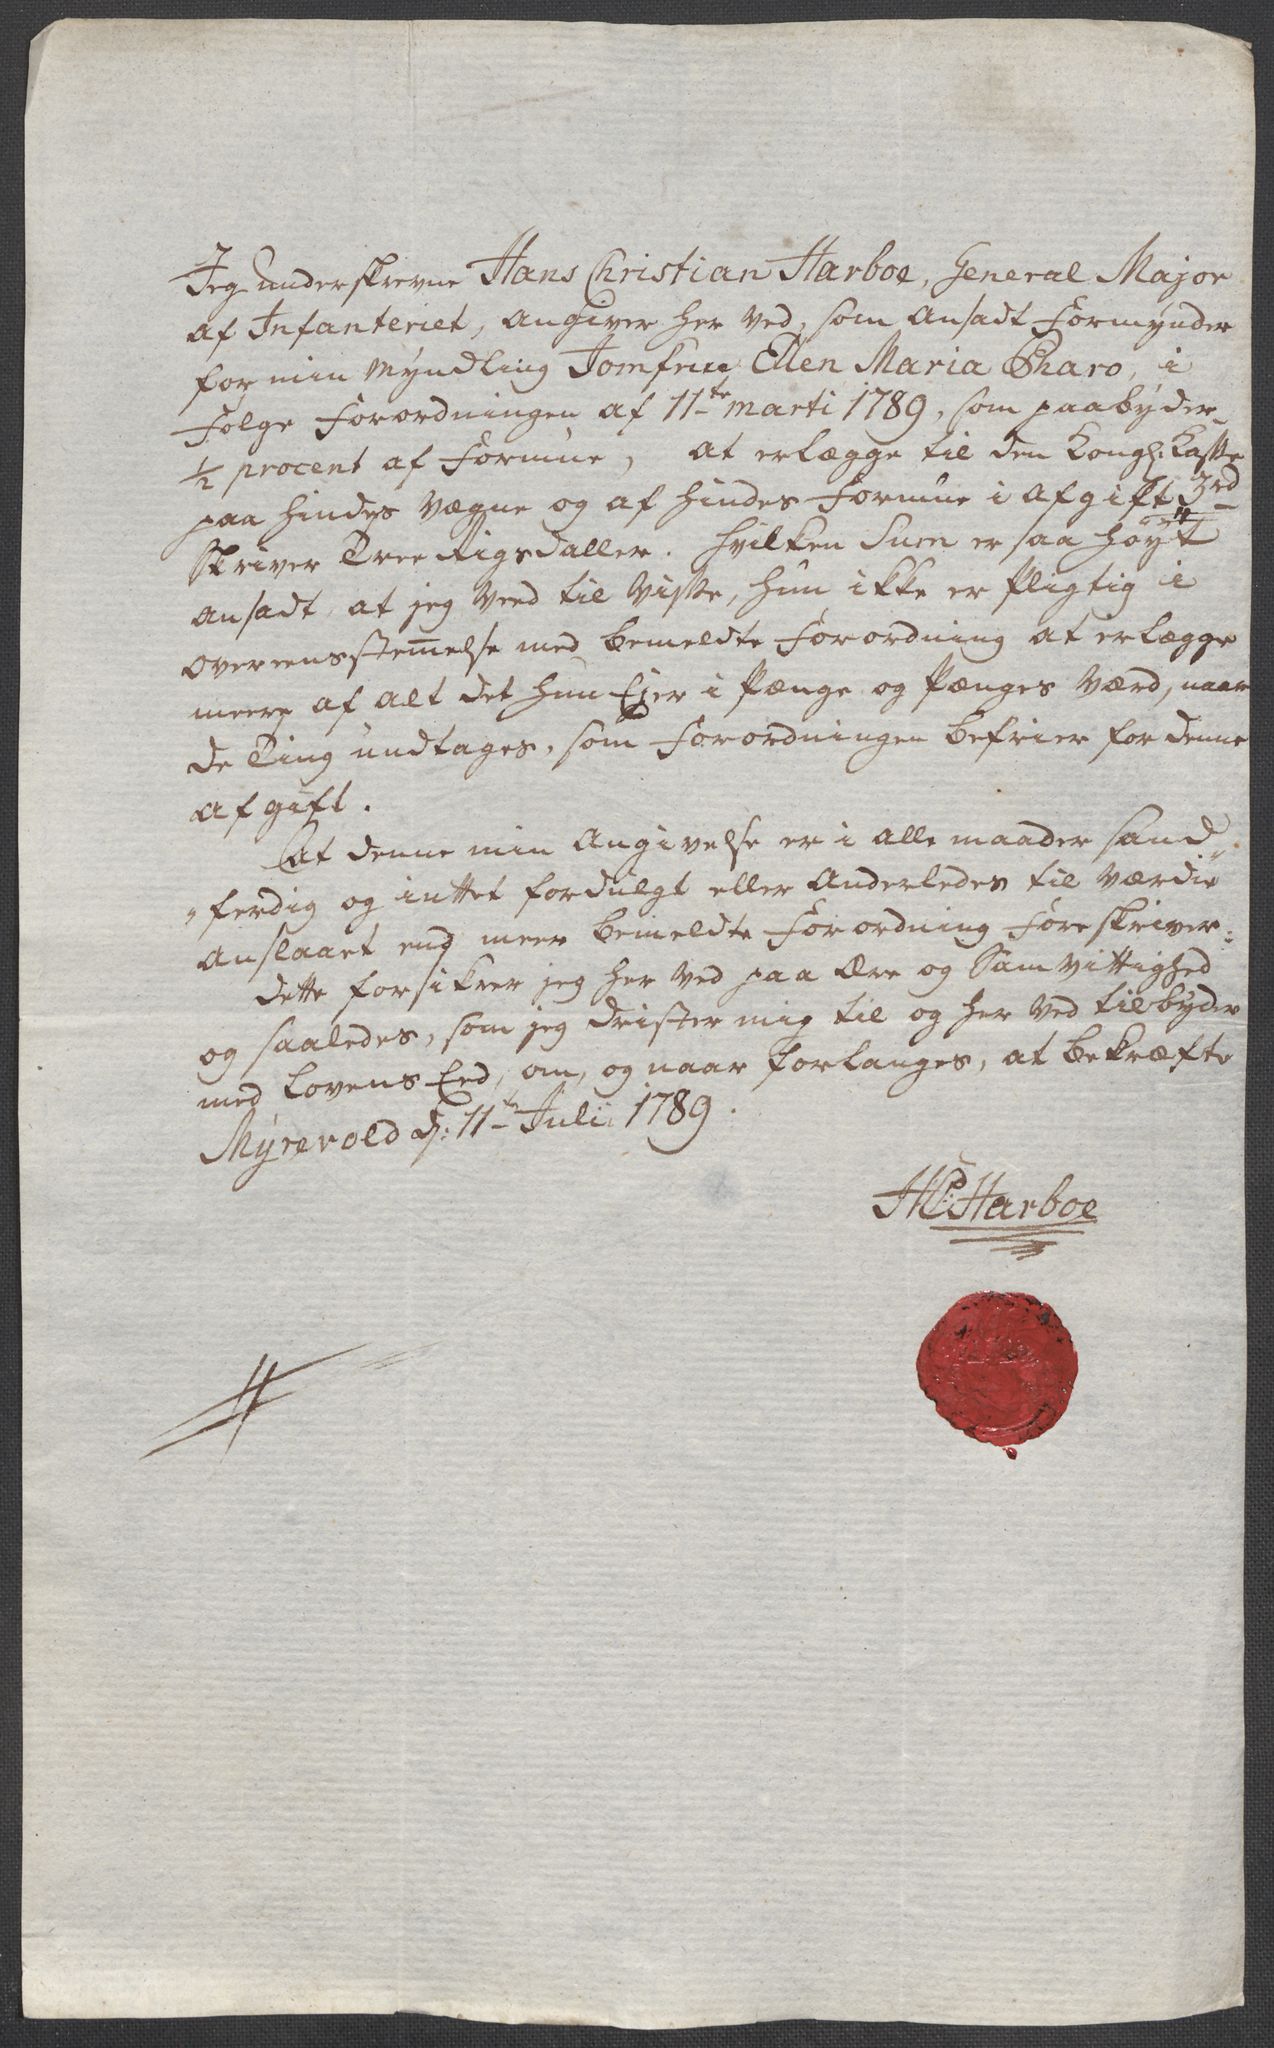 Jeg underskrevne Hans Christian Harboe, General Major
af Infanteriet, angiver her ved, som ansadt Formynder
for min Myndling Jomfrue Ellen Maria Pharo, i
Følge Forordningen af 11te marti 1789, som paabyder
1/2 procent af Formue, at erlægge til den Kongl: Kasse
paa hindes vægne og af hindes Formue i Afgift 3rd
Skriver Tree Rigsdaller. hvilken Sum er saa høyt
ansadt, at jeg veed til visse, hun ikke er pligtig i
overeensstem̄else med bemeldte Forordning at erlægge
meere af alt det hun Ejer i Pænge og Pænges værd, naar
de Ting undtages, som Forordningen befrier for denne
afgift.
At denne min Angivelse er i alle maader sand„
„ferdig og inttet fordulgt eller Anderledes til Værdie
anslaaet end meer bemeldte Forordning Foreskriver:
dette forsikrer jeg her ved paa Ære og Samvittighed
og saaledes, som jeg drister mig til og her ved tilbyder
med Lovens Eed, om, og naar forlanges, at bekræfte
Myrevold d: 11te Julii 1789.
HC: Harboe